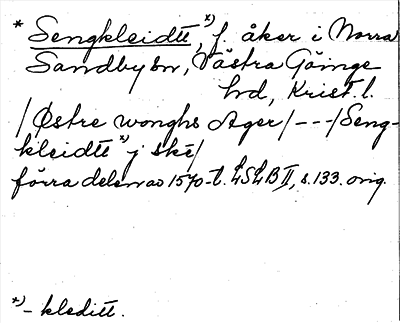 * Sengkleidtt *), f. åker i Norra
Sandby sn, Västra Göinge
hd, Krist. l.
/Østre wonghs Ager/---/Seng-
kleidtt *) j ske/
förra delen av 1570-t. LSLB II, s. 133. orig.
*) - kleditt.